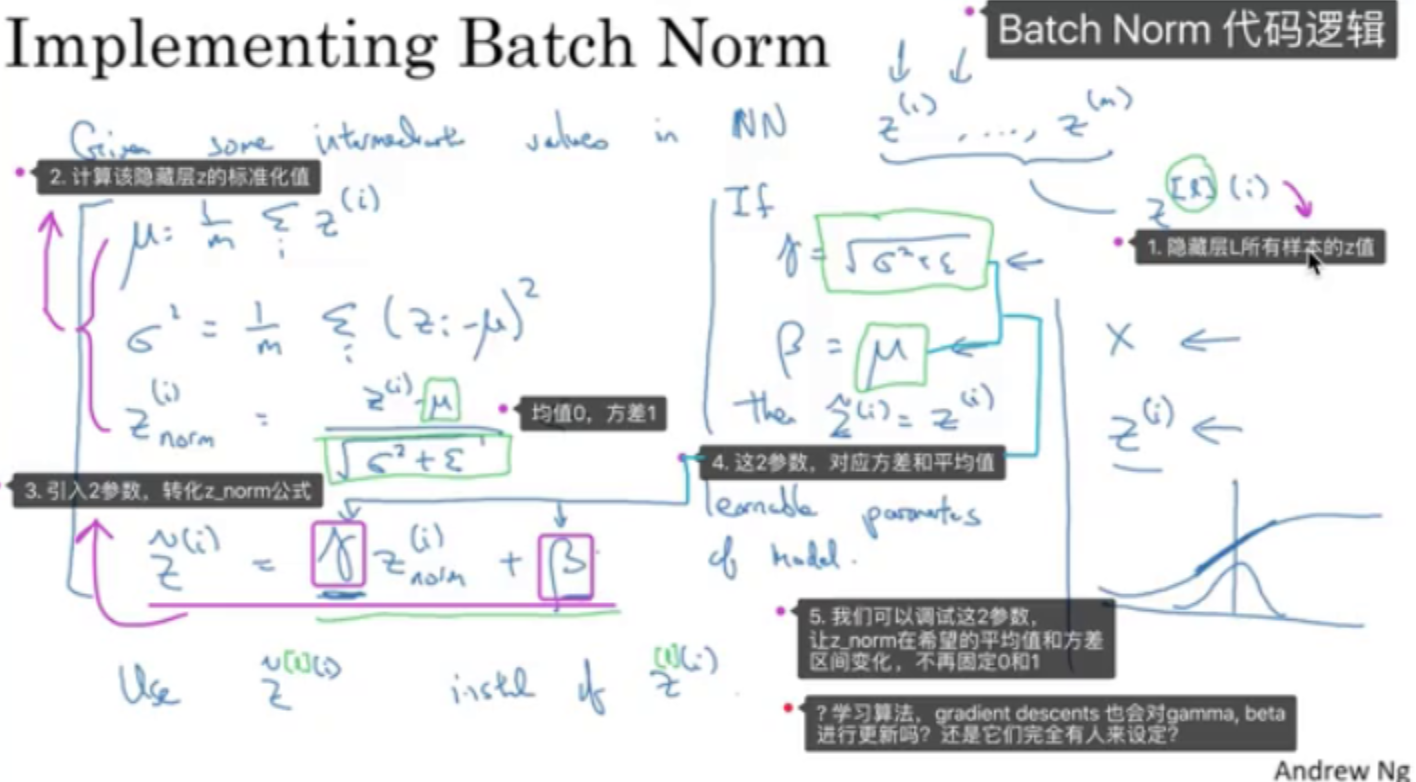 Implementing Batch Norm
Batch Norm 代码逻辑
Given some intermediate values in NN
z^(i) , ...., z^(m)
z^[l](i)
1. 隐藏层L所有样本的z值
2. 计算该隐藏层z的标准化值
μ = 1/m Σ_i z^(i)
σ² = 1/m Σ_i (z_i - μ)²
z_norm^(i) = (z^(i) - μ) / √(σ² + ε)
均值0，方差1
3. 引入2参数，转化z_norm公式
z̃^(i) = γ z_norm^(i) + β
Use z̃^[l](i) instead of z^[l](i).
If
γ = √(σ² + ε) ←
β = μ ←
then z̃^(i) = z^(i)
4. 这2参数，对应方差和平均值
learnable parameters
of model.
X ←
z^(i) ←
5. 我们可以调试这2参数，
让z_norm在希望的平均值和方差
区间变化，不再固定0和1
? 学习算法，gradient descents 也会对gamma, beta
进行更新吗？还是它们完全有人来设定？
Andrew Ng